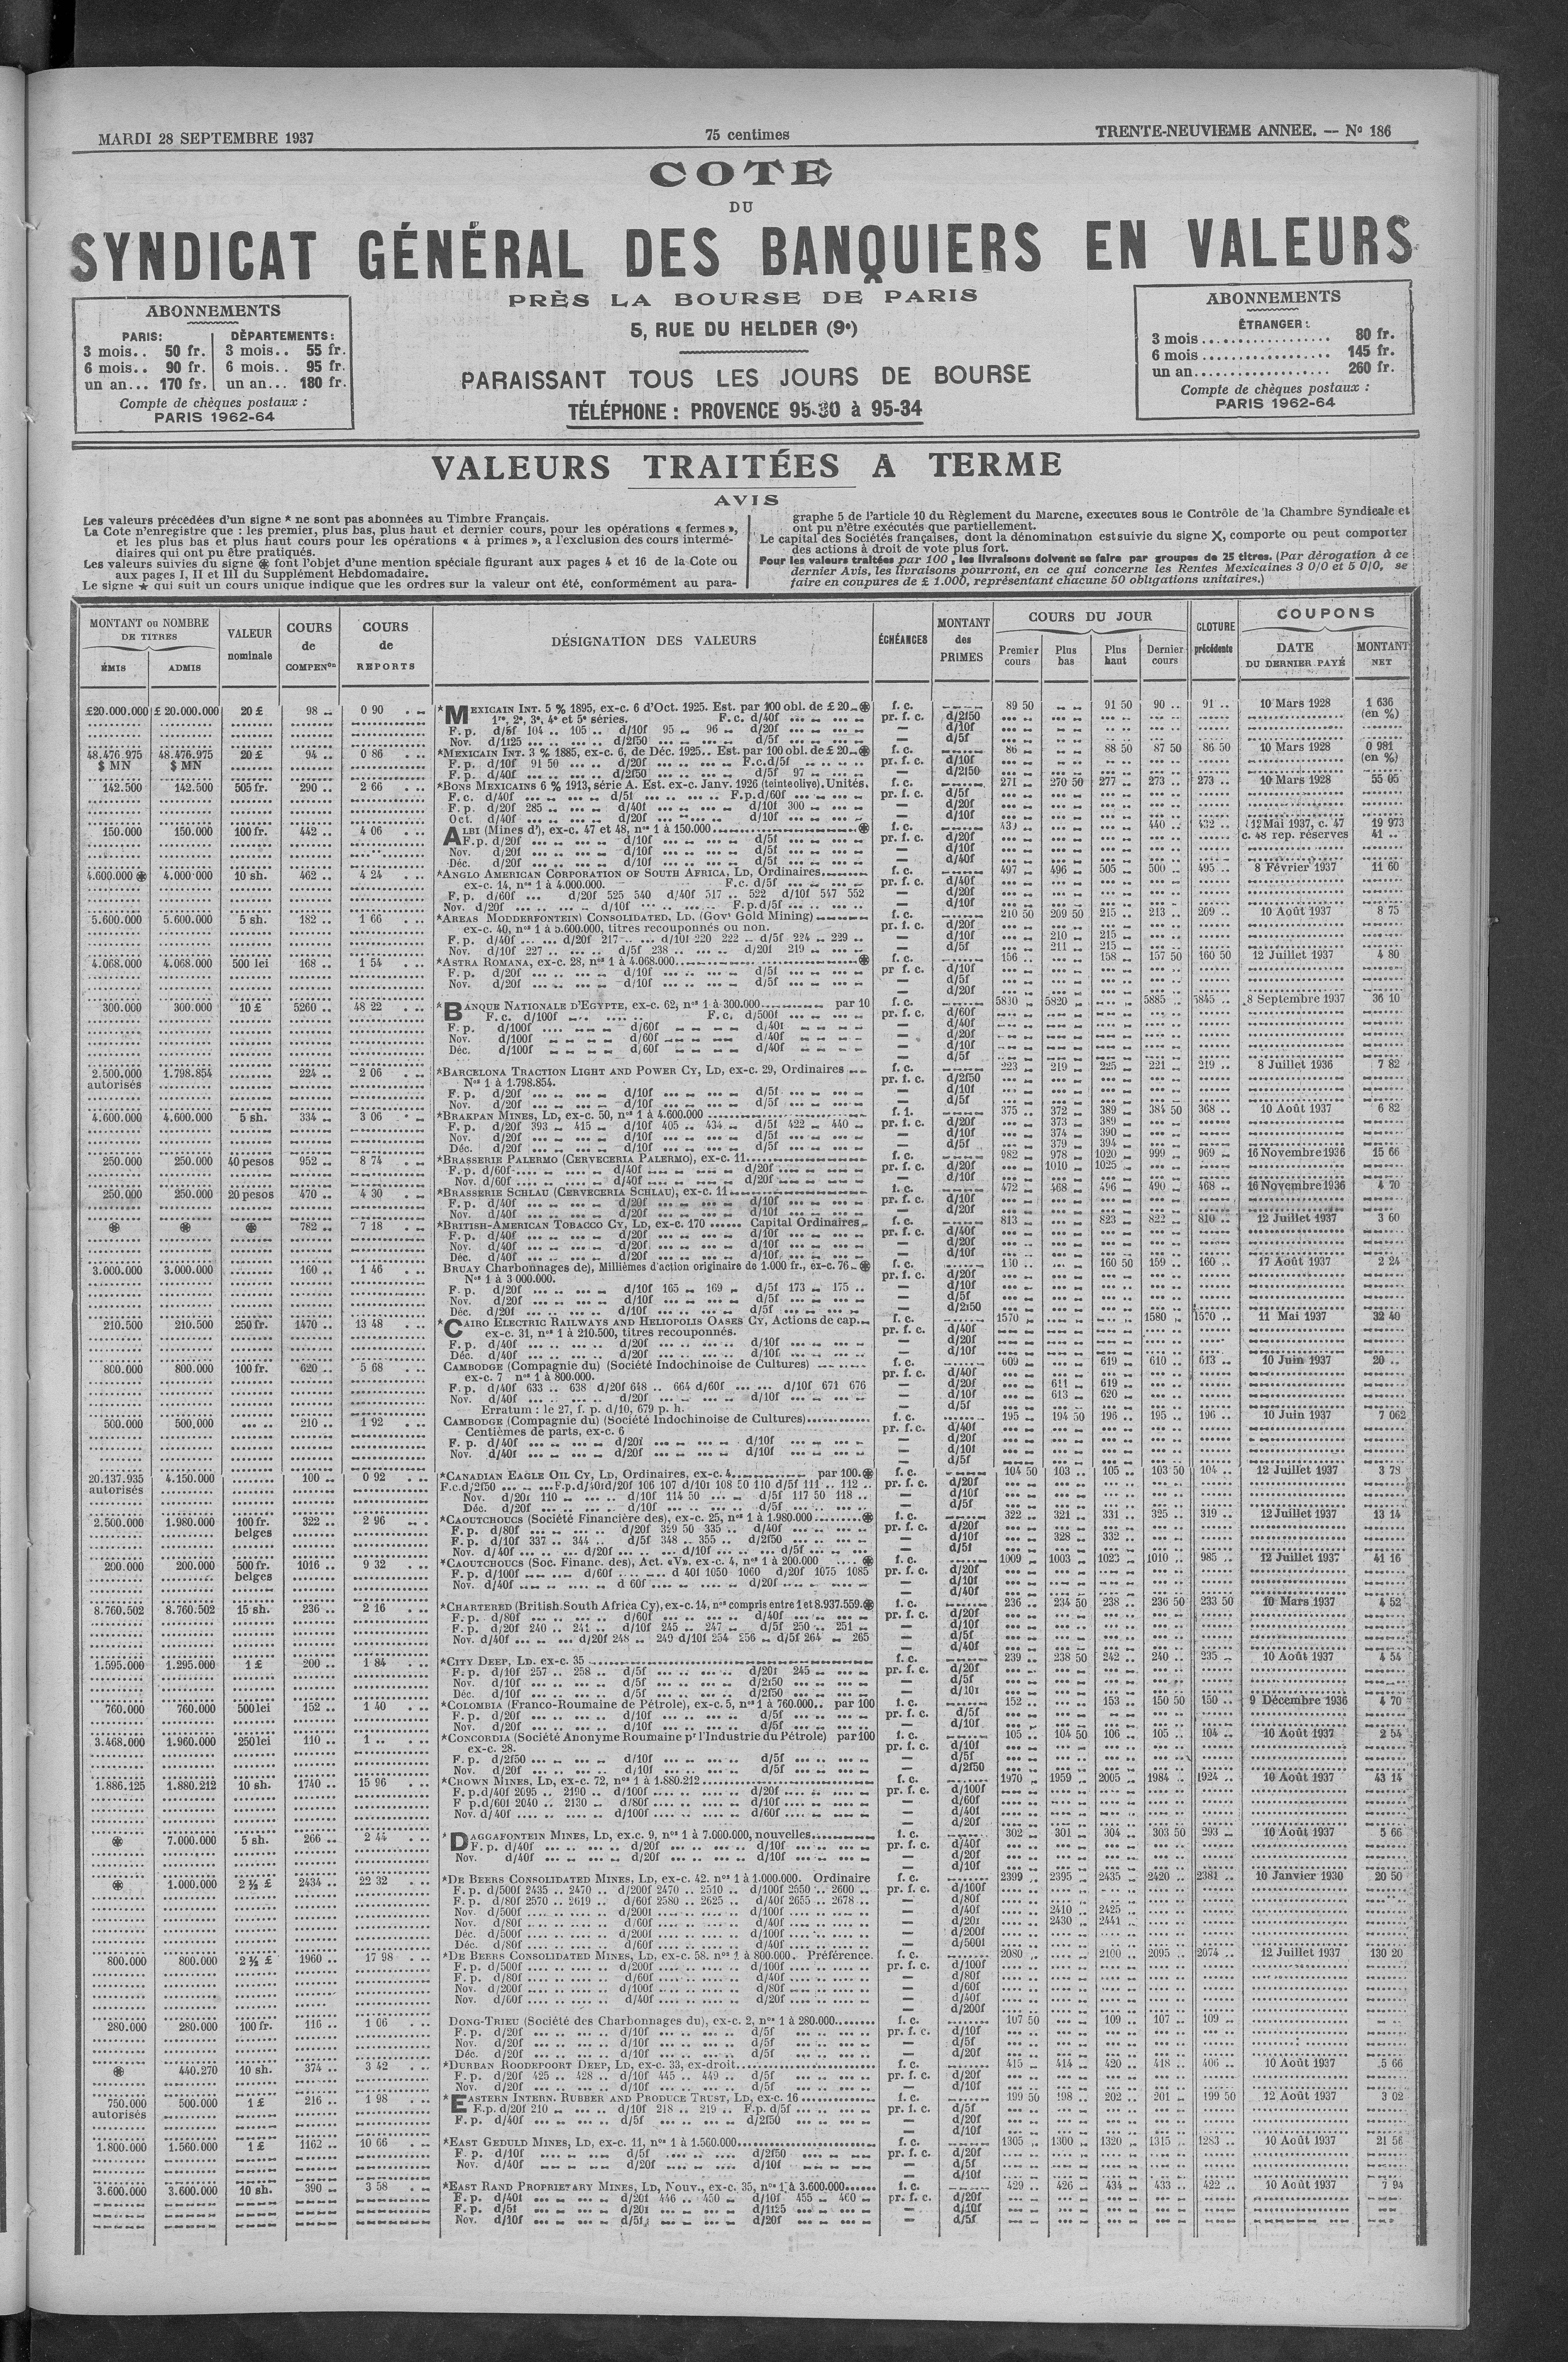 MARDI 28 SEPTEMBRE 1937
75 centimes
TRENTE-NEUVIEME ANNEE. — Nº 186
COTE
DU
SYNDICAT GÉNÉRAL DES BANQUIERS EN VALEURS
PRÈS LA BOURSE DE PARIS
5, RUE DU HELDER (9e)
PARAISSANT TOUS LES JOURS DE BOURSE
TÉLÉPHONE : PROVENCE 95-30 à 95-34
ABONNEMENTS
PARIS: DÉPARTEMENTS:
3 mois.. 50 fr. 3 mois.. 55 fr.
6 mois.. 90 fr. 6 mois.. 95 fr.
un an... 170 fr. un an... 180 fr.
Compte de chèques postaux :
PARIS 1962-64
ABONNEMENTS
ÉTRANGER :
3 mois .................. 80 fr.
6 mois .................. 145 fr.
un an .................. 260 fr.
Compte de chèques postaux :
PARIS 1962-64
VALEURS TRAITÉES A TERME
AVIS
Les valeurs précédées d'un signe * ne sont pas abonnées au Timbre Français.
La Cote n'enregistre que : les premier, plus bas, plus haut et dernier cours, pour les opérations « fermes »,
et les plus bas et plus haut cours pour les opérations « à primes », a l'exclusion des cours intermé-
diaires qui ont pu être pratiqués.
Les valeurs suivies du signe ⊛ font l'objet d'une mention spéciale figurant aux pages 4 et 16 de la Cote ou
aux pages I, II et III du Supplément Hebdomadaire.
Le signe ★ qui suit un cours unique indique que les ordres sur la valeur ont été, conformément au para-
graphe 5 de l'article 10 du Règlement du Marche, executes sous le Contrôle de la Chambre Syndicale et
ont pu n'être exécutés que partiellement.
Le capital des Sociétés françaises, dont la dénomination est suivie du signe X, comporte ou peut comporter
des actions à droit de vote plus fort.
Pour les valeurs traitées par 100, les livraisons doivent se faire par groupes de 25 titres. (Par dérogation à ce
dernier Avis, les livraisons pourront, en ce qui concerne les Rentes Mexicaines 3 0/0 et 5 0/0, se
faire en coupures de £ 1.000, représentant chacune 50 obligations unitaires.)
MONTANT ou NOMBRE DE TITRES
ÉMIS ADMIS
VALEUR nominale
COURS de COMPENon
COURS de REPORTS
DÉSIGNATION DES VALEURS
ÉCHÉANCES
MONTANT des PRIMES
COURS DU JOUR
Premier cours Plus bas Plus haut Dernier cours
CLOTURE précédente
COUPONS
DATE DU DERNIER PAYÉ
MONTANT NET
£20.000.000 £ 20.000.000 20 £ 98 0 90 *MEXICAIN INT. 5 % 1895, ex-c. 6 d'Oct. 1925. Est. par 100 obl. de £ 20 ⊛ f. c. 89 50 91 50 90 .. 91 .. 10 Mars 1928 1 636
1re, 2e, 3e, 4e et 5e séries. F.c. d/40f pr. f. c. d/2f50 (en %)
F. p. d/5f 104 .. 105 .. d/10f 95 96 d/20f — d/10f
Nov. d/1f25 d/2f50 d/5f — d/5f
48.476.975 48.476.975 20 £ 94 .. 0 86 *MEXICAIN INT. 3 % 1885, ex-c. 6, de Déc. 1925.. Est. par 100 obl. de £ 20 ⊛ f. c. 86 88 50 87 50 86 50 10 Mars 1928 0 981
$ MN $ MN F. p. d/10f 91 50 d/20f F.c.d/5f pr. f. c. d/10f (en %)
F. p. d/40f d/2f50 d/5f 97 — d/2f50
142.500 142.500 505 fr. 290 .. 2 66 *BONS MEXICAINS 6 % 1913, série A. Est. ex-c. Janv. 1926 (teinte olive). Unités. f. c. 271 270 50 277 273 .. 273 .. 10 Mars 1928 55 05
F. c. d/40f d/5f F.p.d/60f pr. f. c. d/5f
F. p. d/20f 285 d/40f d/10f 300 — d/20f
Oct. d/40f d/20f d/10f — d/10f
150.000 150.000 100 fr. 442 .. 4 06 ALBI (Mines d'), ex-c. 47 et 48, nos 1 à 150.000 ⊛ f. c. 440 .. 432 .. 12 Mai 1937, c. 47 19 973
F.p. d/20f d/10f d/5f pr. f. c. d/20f c. 48 rep. réserves 41 ..
Nov. d/20f d/10f d/5f — d/10f
Déc. d/20f d/10f d/5f — d/40f
4.600.000 ⊛ 4.000.000 10 sh. 462 .. 4 24 *ANGLO AMERICAN CORPORATION OF SOUTH AFRICA, LD, Ordinaires f. c. 497 496 505 500 .. 495 .. 8 Février 1937 11 60
ex-c. 14, nos 1 à 4.000.000. F.c. d/5f pr. f. c. d/40f
F. p. d/60f d/20f 525 540 d/40f 517 .. 522 d/10f 547 552 — d/20f
Nov. d/20f d/10f F.p.d/5f — d/10f
5.600.000 5.600.000 5 sh. 182 .. 1 66 *AREAS MODDERFONTEIN) CONSOLIDATED, LD. (Govt Gold Mining) f. c. 210 50 209 50 215 .. 213 .. 209 .. 10 Août 1937 8 75
ex-c. 40, nos 1 à 5.600.000, titres recouponnés ou non. pr. f. c. d/20f
F. p. d/40f d/20f 217 d/10f 220 222 d/5f 224 229 .. — d/10f 210 215
Nov. d/10f 227 d/5f 238 d/20f 219 — d/5f 211 215
4.068.000 4.068.000 500 lei 168 .. 1 54 *ASTRA ROMANA, ex-c. 28, nos 1 à 4.068.000 ⊛ f. c. 156 .. 158 157 50 160 50 12 Juillet 1937 4 80
F. p. d/20f d/10f d/5f pr f. c. d/10f
Nov. d/20f d/10f d/5f — d/5f
— d/20f
300.000 300.000 10 £ 5260 .. 48 22 *BANQUE NATIONALE D'EGYPTE, ex-c. 62, nos 1 à 300.000 par 10 f. c. 5830 5820 5885 .. 5845 .. 8 Septembre 1937 36 10
F. c. d/100f F. c. d/500f pr. f. c. d/60f
F. p. d/100f d/60f d/40f — d/40f
Nov. d/100f d/60f d/40f — d/20f
Déc. d/100f d/60f d/40f — d/10f
— d/5f
2.500.000 1.798.854 224 .. 2 06 *BARCELONA TRACTION LIGHT AND POWER CY, LD, ex-c. 29, Ordinaires f. c. 223 219 225 221 .. 219 .. 8 Juillet 1936 7 82
autorisés Nos 1 à 1.798.854. pr. f. c. d/2f50
F. p. d/20f d/10f d/5f — d/10f
Nov. d/20f d/10f d/5f — d/5f
4.600.000 4.600.000 5 sh. 334 3 06 *BRAKPAN MINES, LD, ex-c. 50, nos 1 à 4.600.000 f. 1. 375 .. 372 389 384 50 368 .. 10 Août 1937 6 82
F. p. d/20f 393 415 d/10f 405 .. 434 d/5f 422 440 pr. f. c. d/20f 373 389
Nov. d/20f d/10f d/5f — d/10f 374 390
Déc. d/20f d/10f d/5f — d/5f 379 394
250.000 250.000 40 pesos 952 .. 8 74 *BRASSERIE PALERMO (CERVECERIA PALERMO), ex-c. 11 f. c. 982 978 1020 999 969 16 Novembre 1936 15 66
F. p. d/60f d/40f d/20f pr. f. c. d/20f 1010 1025
Nov. d/60f d/40f d/20f — d/10f
250.000 250.000 20 pesos 470 .. 4 30 *BRASSERIE SCHLAU (CERVECERIA SCHLAU), ex-c. 11 f. c. 472 468 496 490 468 16 Novembre 1936 4 70
F. p. d/40f d/20f d/10f pr. f. c. d/10f
Nov. d/40f d/20f d/10f — d/20f
⊛ ⊛ ⊛ 782 .. 7 18 *BRITISH-AMERICAN TOBACCO CY, LD, ex-c. 170 ...... Capital Ordinaires f. c. 813 823 822 .. 810 .. 12 Juillet 1937 3 60
F. p. d/40f d/20f d/10f pr. f. c. d/40f
Nov. d/40f d/20f d/10f — d/20f
Déc. d/40f d/20f d/10f — d/10f
3.000.000 3.000.000 160 .. 1 46 BRUAY Charbonnages de), Millièmes d'action originaire de 1.000 fr., ex-c. 76 ⊛ f. c. 160 50 159 .. 160 .. 17 Août 1937 2 24
Nos 1 à 3 000.000. pr. f. c. d/20f
F. p. d/20f d/10f 165 169 d/5f 173 175 .. — d/10f
Nov. d/20f d/10f d/5f — d/5f
Déc. d/20f d/10f d/5f — d/2f50
210.500 210.500 250 fr. 1470 .. 13 48 *CAIRO ELECTRIC RAILWAYS AND HELIOPOLIS OASES CY, Actions de cap. f. c. 1570 1580 1570 .. 11 Mai 1937 32 40
ex-c. 31, nos 1 à 210.500, titres recouponnés. pr. f. c. d/40f
F. p. d/40f d/20f d/10f — d/20f
Déc. d/40f d/20f d/10f — d/10f
800.000 800.000 100 fr. 620 .. 5 68 CAMBODGE (Compagnie du) (Société Indochinoise de Cultures) f. c. 609 619 610 .. 613 .. 10 Juin 1937 20 ..
ex-c. 7 nos 1 à 800.000. pr. f. c. d/40f
F. p. d/40f 633 .. 638 d/20f 648 .. 664 d/60f d/10f 671 676 — d/20f 611 619
Nov. d/40f d/20f d/10f — d/10f 613 620
Erratum : le 27, f. p. d/10, 679 p. h. — d/5f
500.000 500.000 210 .. 1 92 CAMBODGE (Compagnie du) (Société Indochinoise de Cultures) f. c. 195 194 50 196 .. 195 .. 196 .. 10 Juin 1937 7 062
Centièmes de parts, ex-c. 6 pr. f. c. d/40f
F. p. d/40f d/20f d/10f — d/20f
Nov. d/40f d/20f d/10f — d/10f
— d/5f
20.137.935 4.150.000 100 .. 0 92 *CANADIAN EAGLE OIL CY, LD, Ordinaires, ex-c. 4 par 100. ⊛ f. c. 104 50 103 .. 105 .. 103 50 104 .. 12 Juillet 1937 3 78
autorisés F.c.d/2f50 F.p.d/40f d/20f 106 107 d/10f 108 50 110 d/5f 111 .. 112 .. pr. f. c. d/20f
Nov. d/20f 110 d/10f 114 50 d/5f 117 50 118 .. — d/10f
Déc. d/20f d/10f d/5f — d/5f
2.500.000 1.980.000 100 fr. 322 .. 2 96 *CAOUTCHOUCS (Société Financière des), ex-c. 25, nos 1 à 1.980.000 ⊛ f. c. 322 .. 321 331 325 .. 319 .. 12 Juillet 1937 13 14
belges F. p. d/80f d/20f 329 50 335 .. d/40f pr. f. c. d/20f
F. p. d/10f 337 .. 344 .. d/5f 348 355 .. d/2f50 — d/10f 328 332
Nov. d/40f d/20f d/10f d/5f — d/5f
200.000 200.000 500 fr. 1016 .. 9 32 *CAOUTCHOUCS (Soc. Financ. des), Act. «V», ex-c. 4, nos 1 à 200.000 ⊛ f. c. 1009 1003 1023 1010 .. 985 .. 12 Juillet 1937 41 16
belges F. p. d/100f d/60f d 40f 1050 1060 d/20f 1075 1085 pr. f. c. d/20f
Nov. d/40f d 60f d/20f — d/10f
— d/40f
8.760.502 8.760.502 15 sh. 236 .. 2 16 *CHARTERED (British South Africa Cy), ex-c. 14, nos compris entre 1 et 8.937.559. ⊛ f. c. 236 .. 234 50 238 .. 236 50 233 50 10 Mars 1937 4 52
F. p. d/80f d/60f d/40f pr. f. c. d/20f
F. p. d/20f 240 .. 241 .. d/10f 245 247 d/5f 250 .. 251 — d/10f
Nov. d/40f d/20f 248 .. 249 d/10f 254 256 d/5f 264 265 — d/5f
— d/40f
1.595.000 1.295.000 1 £ 200 .. 1 84 *CITY DEEP, LD. ex-c. 35 f. c. 239 238 50 242 .. 240 .. 235 10 Août 1937 4 54
F. p. d/10f 257 .. 258 .. d/5f d/20f 245 pr. f. c. d/20f
Nov. d/10f d/5f d/2f50 — d/5f
Déc. d/10f d/5f d/2f50 — d/10f
760.000 760.000 500 lei 152 .. 1 40 *COLOMBIA (Franco-Roumaine de Pétrole), ex-c. 5, nos 1 à 760.000.. par 100 f. c. 152 .. 153 150 50 150 .. 9 Décembre 1936 4 70
F. p. d/20f d/10f d/5f pr. f. c. d/5f
Nov. d/20f d/10f d/5f — d/10f
3.468.000 1.960.000 250 lei 110 .. 1 .. *CONCORDIA (Société Anonyme Roumaine pr l'Industrie du Pétrole) par 100 f. c. 105 104 50 106 .. 105 .. 104 .. 10 Août 1937 2 54
ex-c. 28. pr. f. c. d/10f
F. p. d/2f50 d/10f d/5f — d/5f
Nov. d/20f d/10f d/5f — d/2f50
1.886.125 1.880.212 10 sh. 1740 .. 15 96 *CROWN MINES, LD, ex-c. 72, nos 1 à 1.880.212 f. c. 1970 1959 2005 1984 1924 .. 10 Août 1937 43 14
F. p.d/40f 2095 .. 2190 d/100f d/20f pr. f. c. d/100f
F p.d/60f 2040 .. 2130 d/80f d/10f — d/60f
Nov. d/40f d/100f d/60f — d/40f
— d/20f
⊛ 7.000.000 5 sh. 266 .. 2 44 *DAGGAFONTEIN MINES, LD, ex.c. 9, nos 1 à 7.000.000, nouvelles f. c. 302 301 304 303 50 293 10 Août 1937 5 66
F. p. d/40f d/20f d/10f pr. f. c. d/40f
Nov. d/40f d/20f d/10f — d/20f
— d/10f
⊛ 1.000.000 2 ½ £ 2434 .. 22 32 *DE BEERS CONSOLIDATED MINES, LD, ex-c. 42. nos 1 à 1.000.000. Ordinaire f. c. 2399 2395 2435 2420 2381 .. 10 Janvier 1930 20 50
F. p. d/500f 2435 .. 2470 .. d/200f 2470 .. 2510 .. d/100f 2550 .. 2600 .. pr. f. c. d/100f
F. p. d/80f 2570 .. 2619 .. d/60f 2580 .. 2625 .. d/40f 2655 .. 2678 .. — d/80f
Nov. d/500f d/200f d/100f — d/40f 2410 2425
Nov. d/80f d/60f d/40f — d/20f 2430 2441
Déc. d/500f d/200f d/100f — d/200f
Déc. d/80f d/60f d/40f — d/500f
800.000 800.000 2 ½ £ 1960 .. 17 98 *DE BEERS CONSOLIDATED MINES, LD, ex-c. 58. nos 1 à 800.000. Préférence. f. c. 2080 2100 2095 .. 2074 .. 12 Juillet 1937 130 20
F. p. d/500f d/200f d/100f pr. f. c. d/100f
F. p. d/80f d/60f d/40f — d/80f
Nov. d/200f d/100f d/80f — d/60f
Nov. d/60f d/40f d/20f — d/40f
— d/200f
280.000 280.000 100 fr. 116 .. 1 06 DONG-TRIEU (Société des Charbonnages du), ex-c. 2, nos 1 à 280.000 f. c. 107 50 109 107 109
F. p. d/20f d/10f d/5f pr. f. c. d/10f
Nov. d/20f d/10f d/5f — d/5f
Déc. d/20f d/10f d/5f — d/20f
⊛ 440.270 10 sh. 374 .. 3 42 *DURBAN ROODEPOORT DEEP, LD, ex-c. 33, ex-droit f. c. 415 414 420 418 406 10 Août 1937 5 66
F. p. d/20f 425 .. 428 .. d/10f 445 .. 449 .. d/5f pr. f. c. d/20f
Nov. d/20f d/10f d/5f — d/10f
750.000 500.000 1 £ 216 .. 1 98 *EASTERN INTERN. RUBBER AND PRODUCE TRUST, LD, ex-c. 16 f. c. 199 50 198 202 201 199 50 12 Août 1937 3 02
autorisés F.p. d/20f 210 d/10f 218 .. 219 .. F.p. d/5f pr. f. c. d/5f
F. p. d/40f d/5f d/2f50 — d/20f
— d/10f
1.800.000 1.560.000 1 £ 1162 .. 10 66 *EAST GEDULD MINES, LD, ex-c. 11, nos 1 à 1.560.000 f. c. 1305 1300 1320 1315 1283 .. 10 Août 1937 21 56
F. p. d/10f d/5f d/2f50 pr. f. c. d/20f
Nov. d/40f d/20f d/10f — d/5f
— d/10f
3.600.000 3.600.000 10 sh. 390 3 58 *EAST RAND PROPRIETARY MINES, LD, Nouv., ex-c. 35, nos 1 à 3.600.000 f. c. 429 426 434 433 422 10 Août 1937 7 94
F. p. d/40f d/20f 446 .. 450 d/10f 455 460 pr. f. c. d/20f
F. p. d/5f d/20f d/1f25 — d/10f
Nov. d/10f d/5f d/20f — d/5f